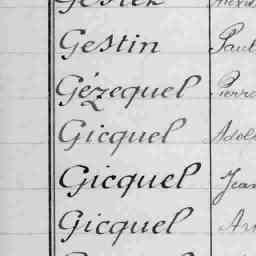 Gestin Paul
Gézequel Pierre
Gicquel Adol
Gicquel Jean
Gicquel Ar